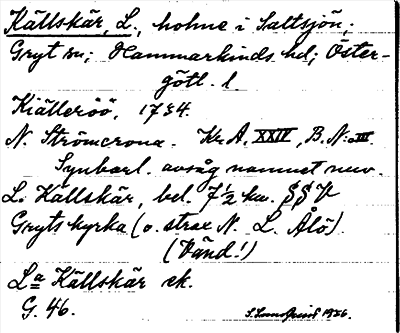 Källskär, L., holme i Saltsjön,
Gryt sn; Hammarkinds hd; Öster-
götl. l.
Kiälleröö, 1734.
N. Strömcrona. Kr. A. XXIV, B. N:
Synbarl. avsåg namnet nuv.
L. Källskär, bel. 7½ km. V
Gryts kyrka (o. strax N. L. Ålö).
(Vänd!)
La Källskär ek.
G. 46.
1926.